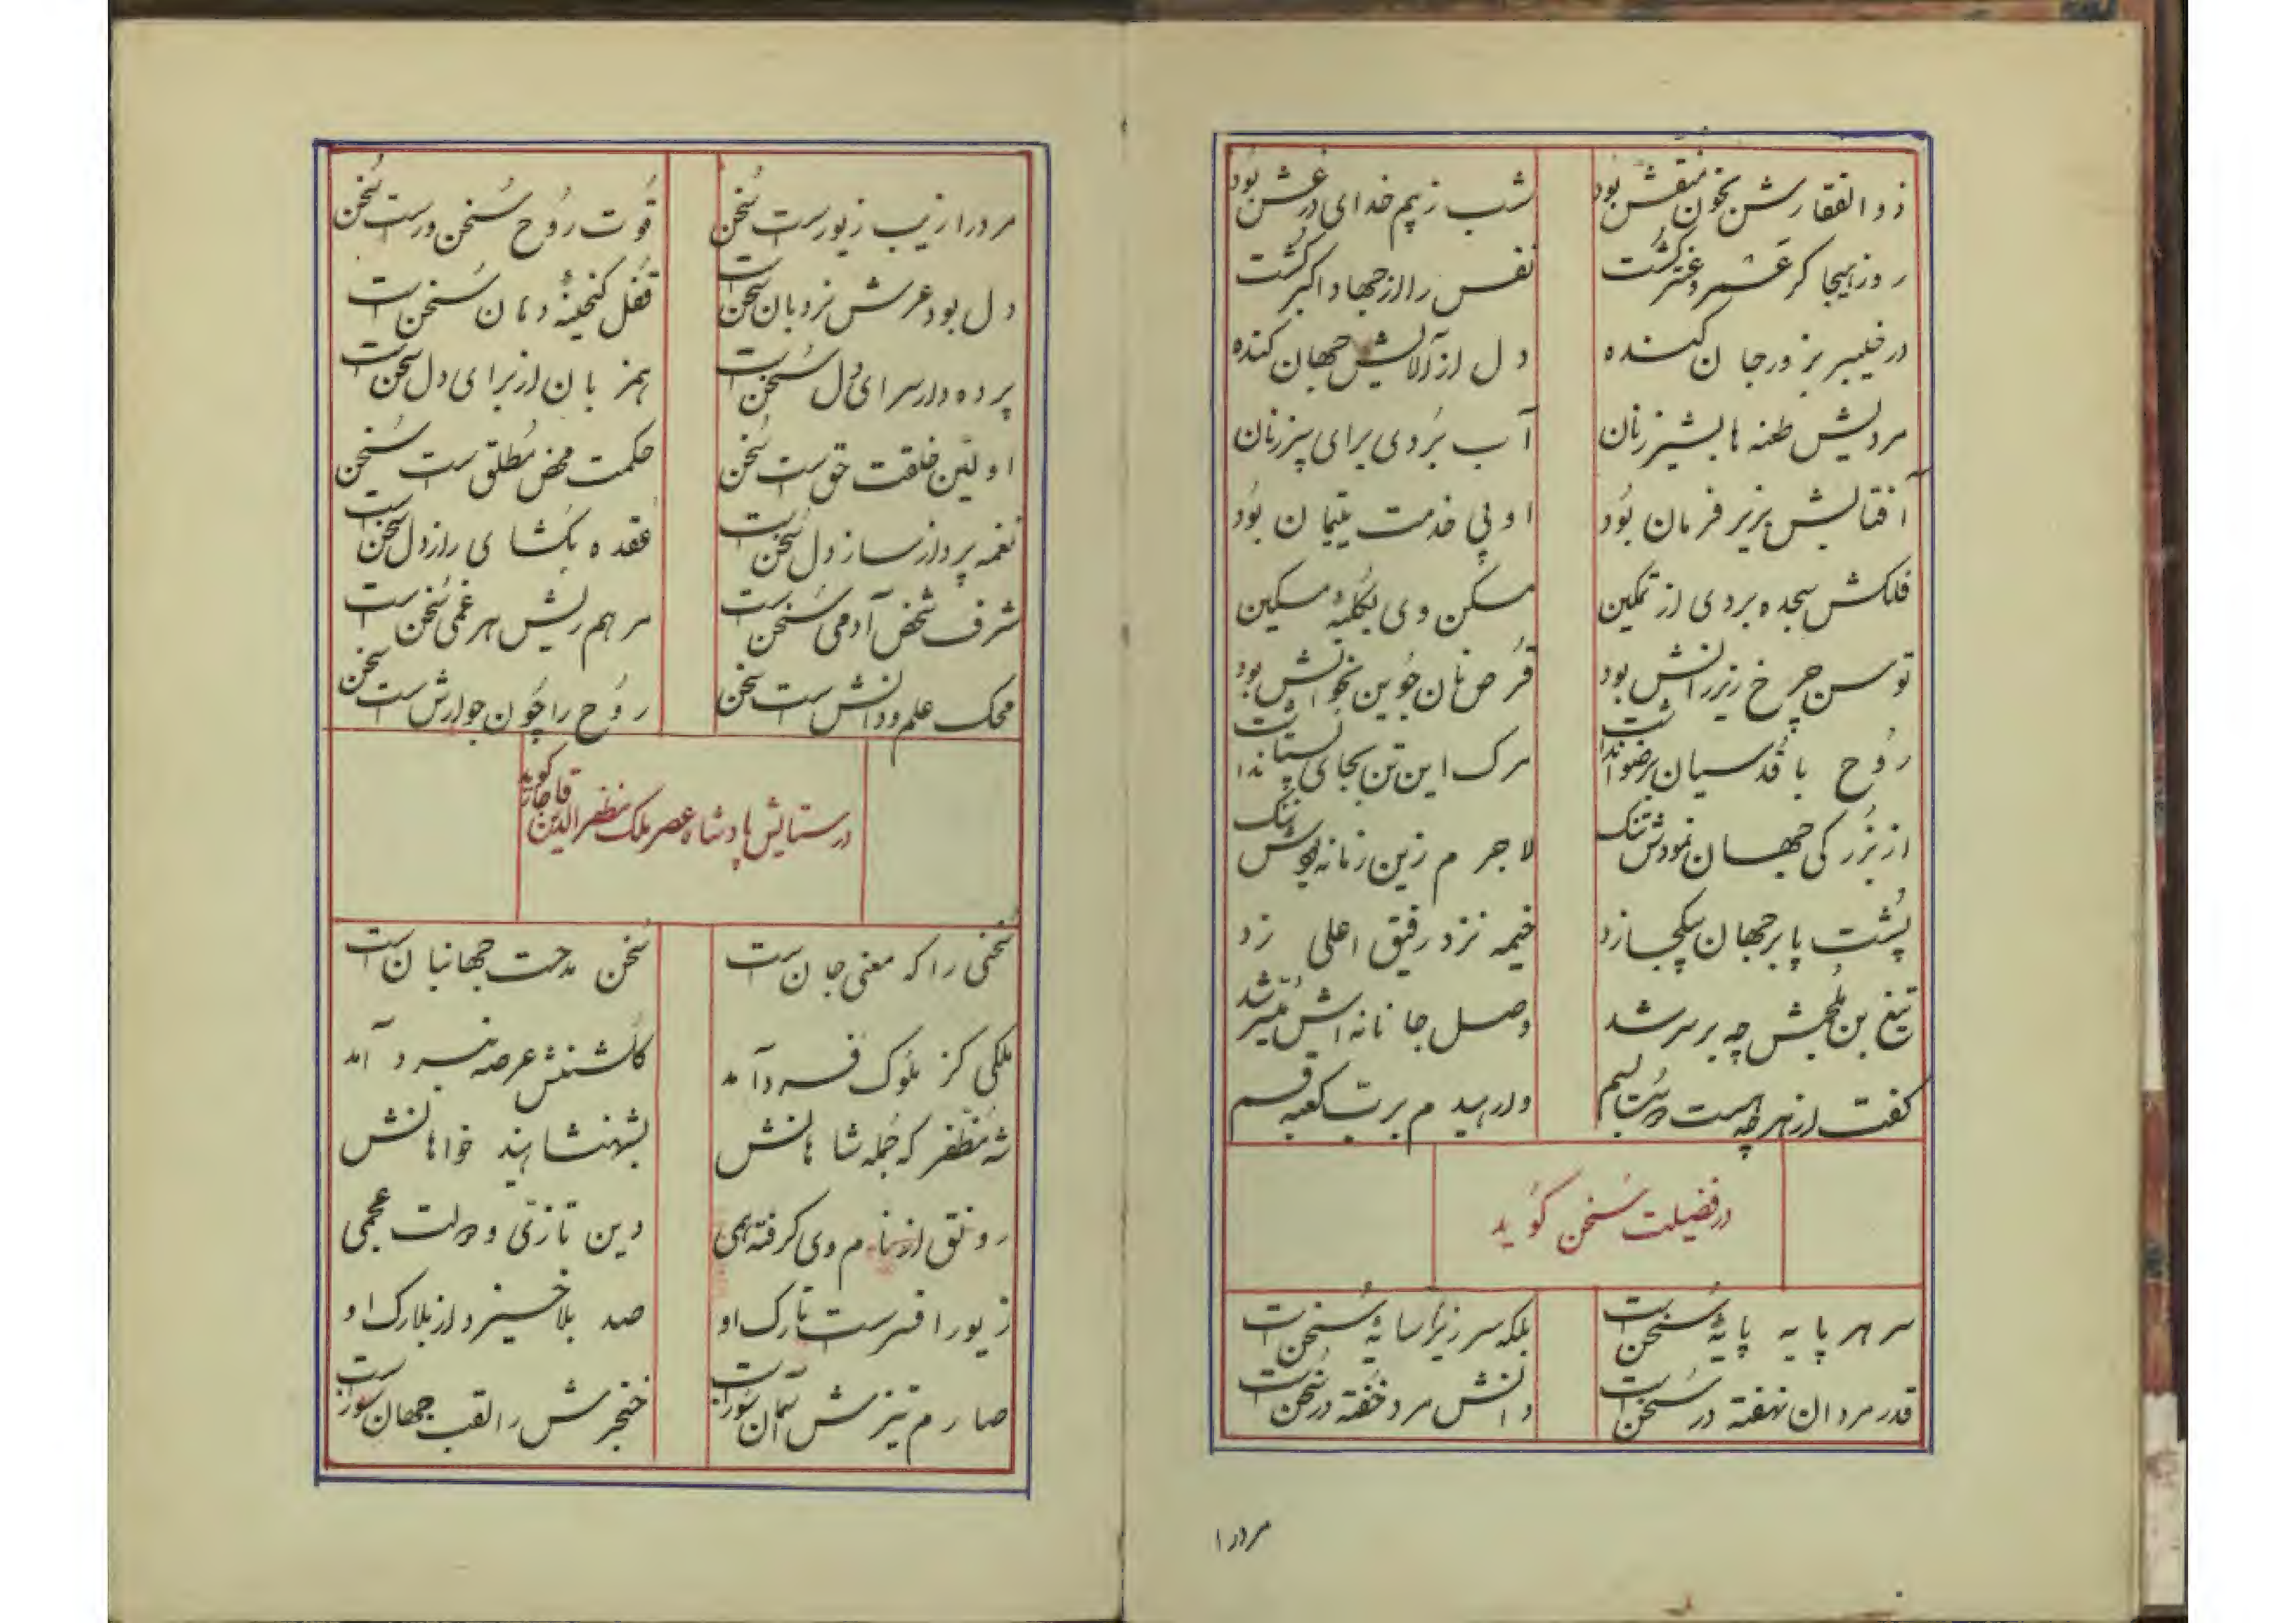 ذوالفقارش بخون منقش بود
شب ز بیم خدای در غش بود
روز هیجا گر عمرو و عنتر کشت
نفس را از جهاد اکبر کشت
در خیبر بزور جان کنده
دل از آلایش جهان کنده
مردیش طعنه ها بشیر زنان
آب بردی برای پیرزنان
آفتابش بزیر فرمان بود
او پی خدمت یتیمان بود
فلکش سجده بردی از تمکین
مسکن وی بکلبهٔ مسکین
توسن چرخ زیر رانش بود
قرص نان جوین بخوانش بود
روح با قدسیان برضوان داشت
مرک این تن بجای پستان داشت
از بزرکی جهان نمودش تنک
لاجرم زین زمانه بودش ننک
پشت پا بر جهان بیکجا زد
خیمه نزد رفیق اعلی زد
تیغ بن ملجمش چه بر سر شد
وصل جانانه اش میسر شد
کفت از هر چه هست دست کشیم
وارهیدم برب کعبه قسم
در فضیلت سخن کوید
سر هر پایه پایهٔ سخن است
بلکه سر زیر سایهٔ سخن است
قدر مردان نهفته در سخن است
دانش مرد خفته در سخن است
مردرا
مردرا زیب زیورست سخن
قوت روح سخن ورست سخن
دل بود عرش نردبان سخن است
قفل کنجینهٔ دهان سخن است
پرده دار سرای دل سخن است
همزبان از برای دل سخن است
اولین خلقت حق است سخن
حکمت محض مطلق است سخن
نغمه پرداز ساز دل سخن است
عقده بکشای راز دل سخن است
شرف شخص آدمی سخن است
مرهم ریش هر غمی سخن است
محک علم و دانش است سخن
روح را چون جوارش است سخن
در ستایش پادشاه عصر ملک مظفرالدین قاجار کوید
سخنی را که معنی جان است
سخن مدحت جهانبان است
ملکی کز ملوک فرد آمد
کاشنش عرصه نبرد آمد
شه مظفر که جمله شاهانش
بشهنشاهیند خواهانش
رونق از نام وی کرفته همی
دین تازی و دولت عجمی
زیور افسرست تارک او
صد بلا خیزد از بلارک او
صارم تیزش آسمان سوز است
خنجرش را لقب جهان سوز است